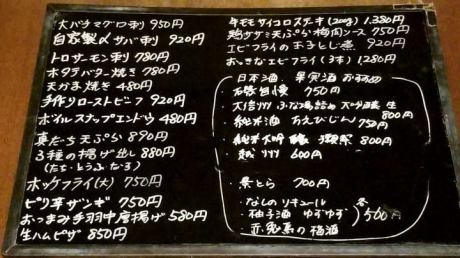 大バチマグロ刺 950円
自家製〆サバ刺 920円
トロサーモン刺 780円
ホタテバター焼き 780円
天かま焼き 480円
手作りローストビーフ 920円
ボイルスナップエンドウ 480円
真だち天ぷら 890円
3種の揚げ出し 880円
(たち・とうふ・なす)
ホッケフライ(大) 750円
ピリ辛ザンギ 750円
おつまみ手羽中唐揚げ 580円
生ハムピザ 850円
牛モモサイコロステーキ(200g) 1,380円
鶏ササミ天ぷら梅肉ソース 750円
エビフライの玉子とじ煮 920円
おっきなエビフライ(3本) 1,280円
日本酒、果実酒おすすめ
・大信州
800円
・純米酒 あえびじん 750円
・純米大吟醸 獺祭 800円
・越州 600円
700円
・なしのリキュール
・柚子酒 ゆずゆず
・赤兎馬の梅酒
各500円